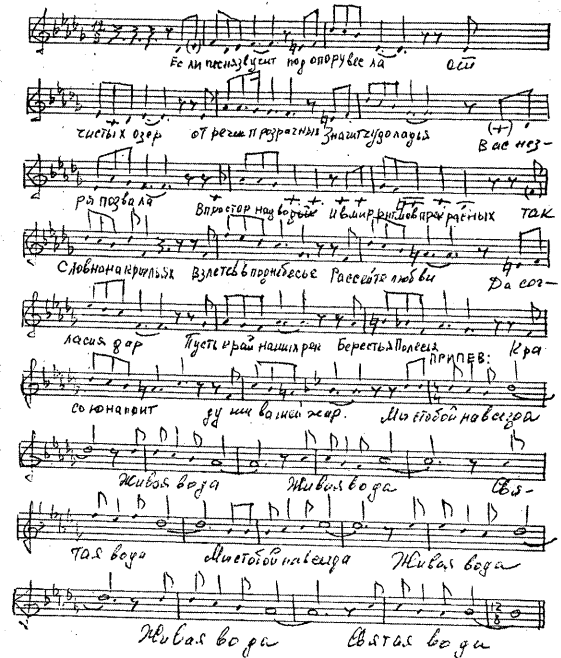 Если песня звучит под опору весла от
чистых озер от речек прозрачных Значит чудо ладья Вас нез-
ря позвала В простор над водных и в мир ритмов прекрасных так
Словно на крыльях взлетев в поднебесье Рассейте любви Да сог-
ласия дар Пусть край наших рек Берестья Полесья Кра
ПРИПЕВ:
сою напоит души вашей жар. Мы с тобой навсегда
Живая вода Живая вода Свя-
тая вода Мы с тобой навсегда Живая вода
Живая вода Святая вода